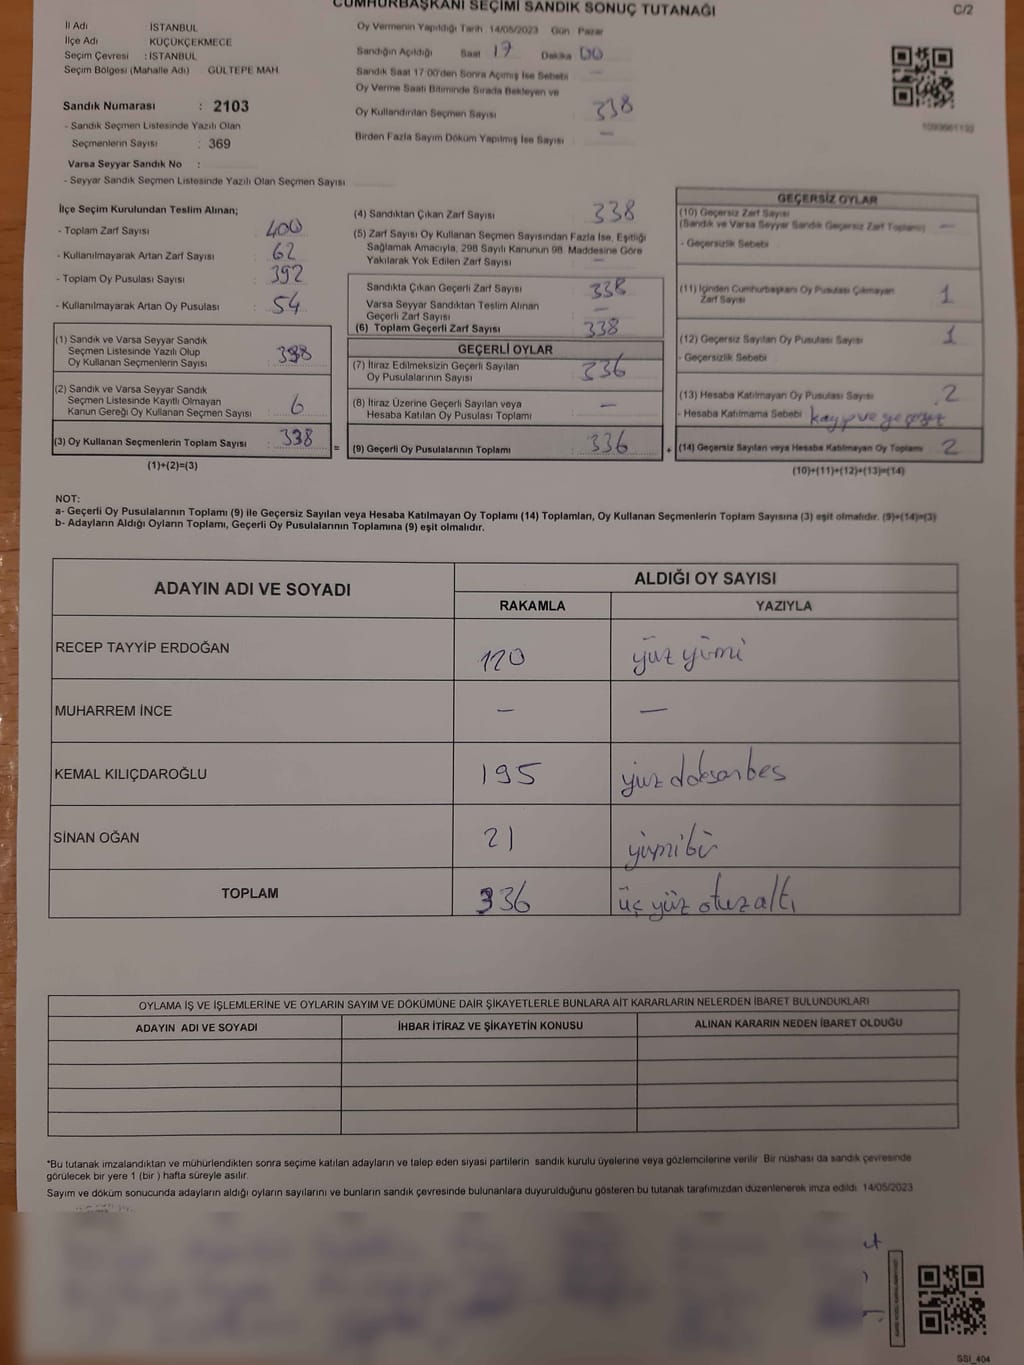 CUMHURBAŞKANI SEÇİMİ SANDIK SONUÇ TUTANAĞI
C/2
İl Adı İSTANBUL
İlçe Adı KÜÇÜKÇEKMECE
Seçim Çevresi : İSTANBUL
Seçim Bölgesi (Mahalle Adı) GÜLTEPE MAH.
Sandık Numarası : 2103
- Sandık Seçmen Listesinde Yazılı Olan
Seçmenlerin Sayısı : 369
Varsa Seyyar Sandık No :
- Seyyar Sandık Seçmen Listesinde Yazılı Olan Seçmen Sayısı
Oy Vermenin Yapıldığı Tarih 14/05/2023 Gün Pazar
Sandığın Açıldığı Saat 17 Dakika 00
Sandık Saat 17:00'den Sonra Açılmış İse Sebebi —
Oy Verme Saati Bitiminde Sırada Bekleyen ve
Oy Kullandırılan Seçmen Sayısı : 338
Birden Fazla Sayım Döküm Yapılmış İse Sayısı : —
İlçe Seçim Kurulundan Teslim Alınan;
- Toplam Zarf Sayısı : 400
- Kullanılmayarak Artan Zarf Sayısı : 62
- Toplam Oy Pusulası Sayısı : 392
- Kullanılmayarak Artan Oy Pusulası : 54
(1) Sandık ve Varsa Seyyar Sandık
Seçmen Listesinde Yazılı Olup
Oy Kullanan Seçmenlerin Sayısı : 338
(2) Sandık ve Varsa Seyyar Sandık
Seçmen Listesinde Kayıtlı Olmayan
Kanun Gereği Oy Kullanan Seçmen Sayısı : 6
(3) Oy Kullanan Seçmenlerin Toplam Sayısı : 338 =
(1)+(2)=(3)
(4) Sandıktan Çıkan Zarf Sayısı : 338
(5) Zarf Sayısı Oy Kullanan Seçmen Sayısından Fazla İse, Eşitliği
Sağlamak Amacıyla, 298 Sayılı Kanunun 98. Maddesine Göre
Yakılarak Yok Edilen Zarf Sayısı : —
Sandıkta Çıkan Geçerli Zarf Sayısı : 338
Varsa Seyyar Sandıktan Teslim Alınan
Geçerli Zarf Sayısı : —
(6) Toplam Geçerli Zarf Sayısı : 338
GEÇERLİ OYLAR
(7) İtiraz Edilmeksizin Geçerli Sayılan
Oy Pusulalarının Sayısı : 336
(8) İtiraz Üzerine Geçerli Sayılan veya
Hesaba Katılan Oy Pusulası Toplamı : —
(9) Geçerli Oy Pusulalarının Toplamı : 336 +
GEÇERSİZ OYLAR
(10) Geçersiz Zarf Sayısı
(Sandık ve Varsa Seyyar Sandık Geçersiz Zarf Toplamı) : —
- Geçersizlik Sebebi
(11) İçinden Cumhurbaşkanı Oy Pusulası Çıkmayan
Zarf Sayısı 1
(12) Geçersiz Sayılan Oy Pusulası Sayısı 1
- Geçersizlik Sebebi
(13) Hesaba Katılmayan Oy Pusulası Sayısı 2
- Hesaba Katılmama Sebebi : kayıp ve
(14) Geçersiz Sayılan veya Hesaba Katılmayan Oy Toplamı 2
(10)+(11)+(12)+(13)=(14)
NOT:
a- Geçerli Oy Pusulalarının Toplamı (9) ile Geçersiz Sayılan veya Hesaba Katılmayan Oy Toplamı (14) Toplamları, Oy Kullanan Seçmenlerin Toplam Sayısına (3) eşit olmalıdır. (9)+(14)=(3)
b- Adayların Aldığı Oyların Toplamı, Geçerli Oy Pusulalarının Toplamına (9) eşit olmalıdır.
ADAYIN ADI VE SOYADI ALDIĞI OY SAYISI
RAKAMLA YAZIYLA
RECEP TAYYİP ERDOĞAN 120 yüz yirmi
MUHARREM İNCE — —
KEMAL KILIÇDAROĞLU 195 yüz doksanbeş
SİNAN OĞAN 21 yirmibir
TOPLAM 336 üç yüz otuzaltı
OYLAMA İŞ VE İŞLEMLERİNE VE OYLARIN SAYIM VE DÖKÜMÜNE DAİR ŞİKAYETLERLE BUNLARA AİT KARARLARIN NELERDEN İBARET BULUNDUKLARI
ADAYIN ADI VE SOYADI İHBAR İTİRAZ VE ŞİKAYETİN KONUSU ALINAN KARARIN NEDEN İBARET OLDUĞU
*Bu tutanak imzalandıktan ve mühürlendikten sonra seçime katılan adayların ve talep eden siyasi partilerin sandık kurulu üyelerine veya gözlemcilerine verilir. Bir nüshası da sandık çevresinde
görülecek bir yere 1 (bir ) hafta süreyle asılır.
Sayım ve döküm sonucunda adayların aldığı oyların sayılarını ve bunların sandık çevresinde bulunanlara duyurulduğunu gösteren bu tutanak tarafımızdan düzenlenerek imza edildi. 14/05/2023
SSI_404